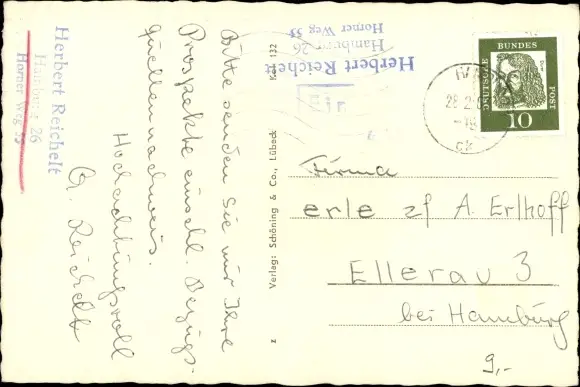 Herbert Reichelt
Hamburg 26
Horner Weg 55
Bitte senden Sie mir Ihre
Prospekte einschl. Bezugs-
quellennachweis.
Hochachtungsvoll
H. Reichelt
Verlag: Schöning & Co., Lübeck
Kat 132
z
Herbert Reichelt
Hamburg 26
Horner Weg 55
DEUTSCHE
BUNDES
POST
10
28.2.
-18
Firma
erle zf A. Erlhoff
Ellerau 3
bei Hamburg
9,-